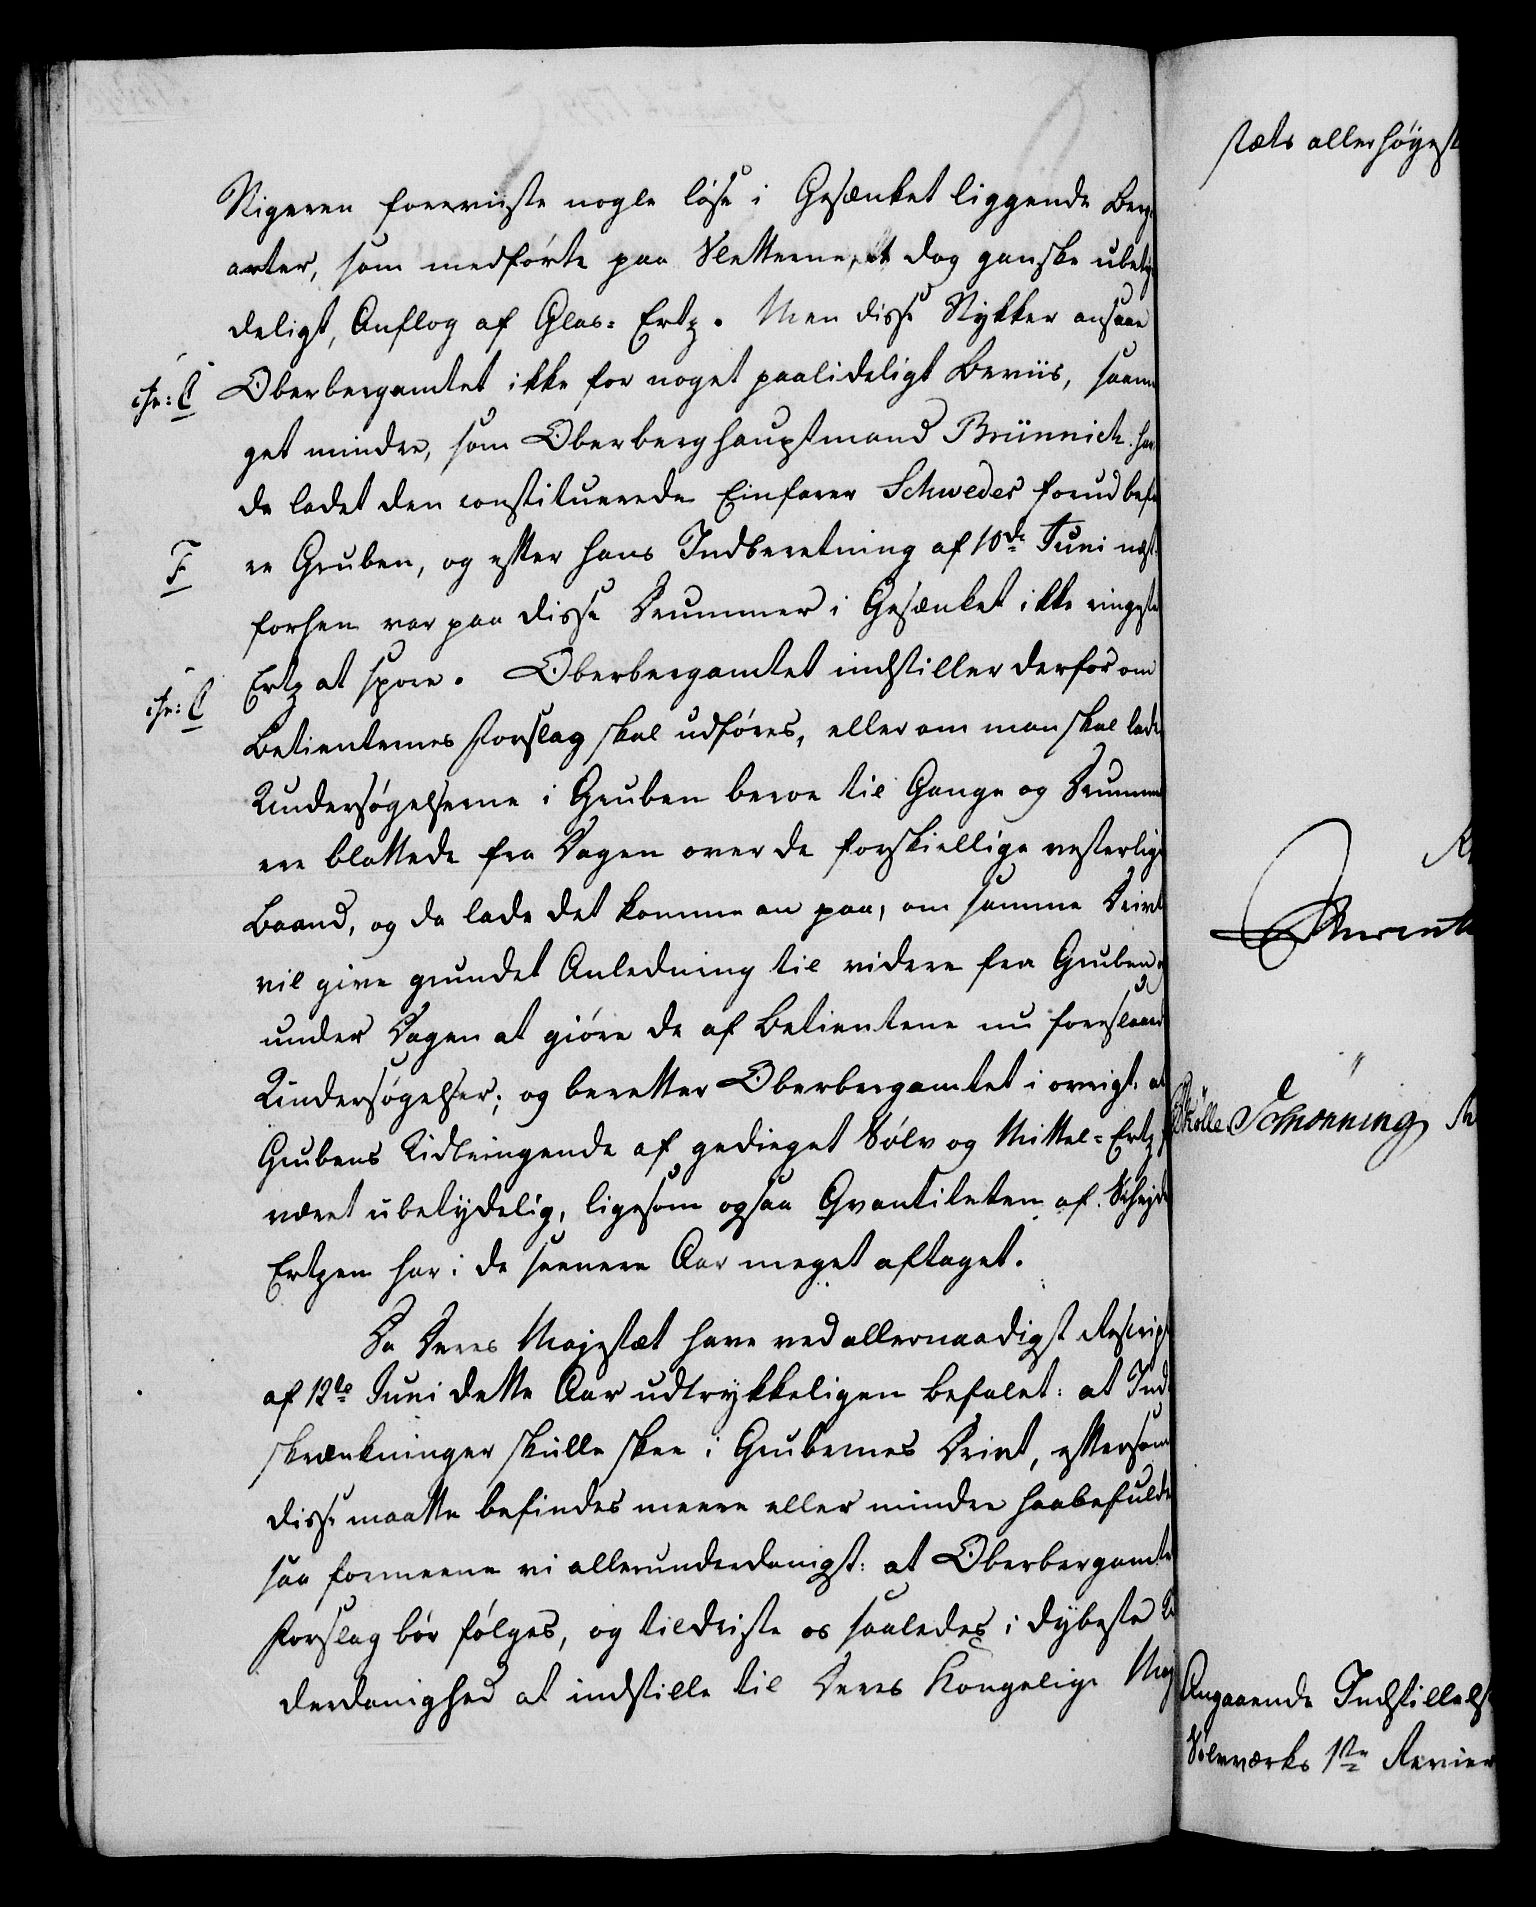 Stigeren foreviiste nogle løse i Gesænket liggende Berg-
arter, som medførte paa Kletterne, et dog ganske ubety-
deligt, Anflog af Glas-Ertz. Men disse Stykker ansaae
cfr: C Oberbergamtet ikke for noget paalideligt Beviis, saame-
get mindre, som Oberberghauptmand Brünnich hav-
de ladet den constituerede Einfarer Schwedes forud befa-
F re Gruben, og efter hans Indberetning af 10de Juni næst-
forhen var paa disse Drummer i Gesænket ikke ringeste
cfr: C Ertz at spore. Oberbergamtet indstiller derfor om
Betienternes Forslag skal udføres, eller om man skal lade
Undersøgelserne i Gruben beroe til Gange og Drummer
ere blottede fra Dagen over de forskiellige vesterlige
Baand, og da lade det komme an paa, om samme Drivt
vil give grundet Anledning til videre fra Gruben og
under Dagen at giöre de af Betientene nu foreslaaed
Undersøgelser; og beretter Oberbergamtet i øvrigt: at
Grubens Udbringende af gedieget Sölv og Mittel-Ertz
været ubetydelig, ligesom ogsaa Qvantiteten af Scheide
Ertzen har i de seenere Aar meget aftaget.
Da Deres Majestæt have ved allernaadigst Rescript
af 12te Juni dette Aar udtrykkeligen befalet: at Ind-
skrænkninger skulle skee i Grubernes Drivt, eftersom
disse maatte befindes meere eller mindre haabefulde
saa formeene vi allerunderdanigst: at Oberbergamte
Forslag bör fölges, og tildriste os saaledes i dybeste Un
derdanighed at indstille til Deres Kongelige Maj
stæts allerhöyest
Schönning
Angaaende Indstillels
Sölvværks 1ste Revier